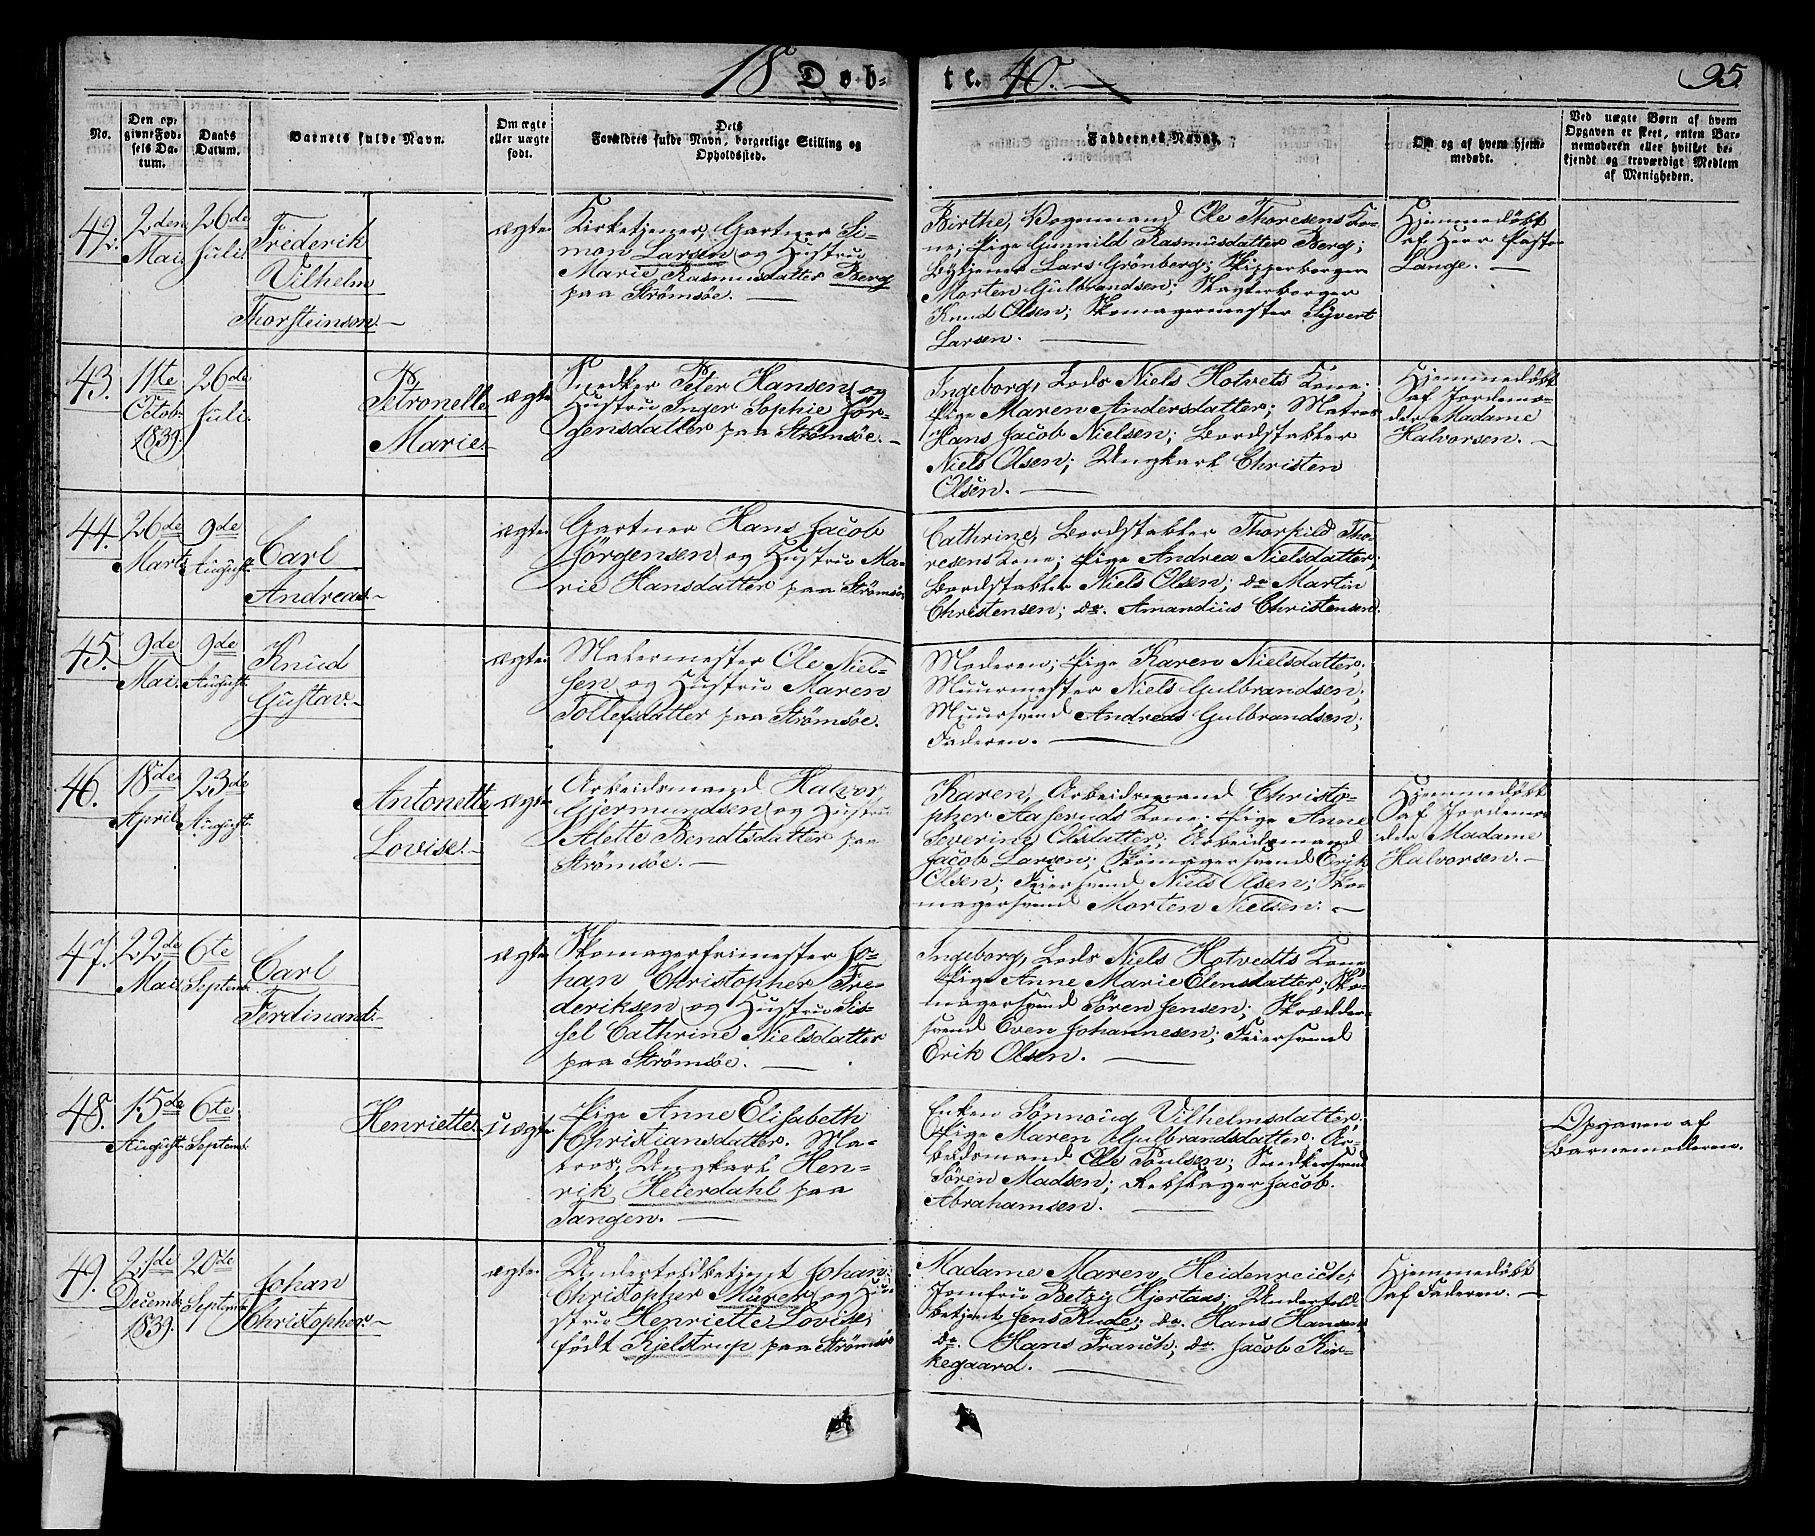 18 Døb-te. 40. 95
No.
Den op-
givne Fød-
sels Da-
tum.
Daabs
Datum.
Barnets fulde Navn.
Om ægte
eller uægte
født.
Dets
Forældres fulde Navn, borgerlige Stilling og
Opholdssted.
Faddernes Navne.
Om og af hvem hjem-
medøbt.
Ved uægte Børn af hvem
Opgaven er skeet, enten Bar-
nemoderen eller hvilket be-
kjendt og troværdigt Medlem
af Menigheden.
42.
2den
Mai.
26de
Juli.
Frederik
Vilhelm
Thorsteinson.
ægte
Kirketjener, Gartner Si-
mon Larsen og Hustru
Marie Rasmusdatter Berg
paa Strömsöe.
Birthe, Vognmand Ole Thoresens Ko-
ne; Pige Gunnild Rasmusdatter Berg;
Bytjener Lars Grönberg; Skipperborger
Morten Gulbrandsen; Skagterborger
Knud Olsen; Skomagermester Syvert
Larsen.
Hjemmedöbt
af Herr Pastor
Lange.
43.
11te
Octob.
1839.
26de
Juli.
Petronelle
Marie.
ægte
Snedker Peter Hansen og
Hustru Inger Sophie Jör-
gensdatter paa Strömsöe.
Ingeborg, Lods Niels Hotvets Kone;
Pige Maren Andersdatter; Matros
Hans Jacob Nielsen; Bordstabler
Niels Olsen; Ungkarl Christen
Olsen.
Hjemmedöbt
af Jordemo-
der Madame
Halvorsen.
44.
26de
Marts
9de
August.
Carl
Andreas.
ægte
Gartner Hans Jacob
Jörgensen og Hustru Ma-
rie Hansdatter paa Strömsöe
Cathrine, Bordstabler Thorkild Tho-
resens Kone; Pige Andrea Nielsdatter;
Bordstabler Niels Olsen; do Martin
Christensen; do. Amandius Christensen.
45.
9de
Mai.
9de
August.
Knud
Gustav.
ægte
Malermester Ole Niel-
sen og Hustru Maren
Tollefsdatter paa Strömsöe.
Moderen; Pige Karen Nielsdatter;
Muurmester Niels Gulbrandsen;
Muursvend Andreas Gulbrandsen;
Faderen.
46.
18de
April
23de
August.
Antonette
Lovise.
ægte
Arbeidsmand Halvor
Gjermundsen og Hustru
Alette Bendtsdatter paa
Strömsöe.
Karen, Arbeidsmand Christo-
pher Aaseruds Kone; Pige Anne
Severine Olsdatter; Arbeidsmand
Jacob Larsen; Skomagersvend Erik
Olsen; Feiersvend Niels Olsen; Sko-
magersvend Morten Nielsen.
Hjemmedöbt
af Jordemo-
der Madame
Halvorsen.
47.
22de
Mai.
6te
Septemb.
Carl
Ferdinand.
ægte
Skomagerfrimester Jo-
han Christopher Fre-
deriksen og Hustru Sis-
sel Cathrine Nielsdatter
paa Strömsöe.
Ingeborg, Lods Niels Hotvedts Kone
Pige Anne Marie Elensdatter; Sko-
magersvend Sören Jensen; Skrædder-
svend Even Johannesen; Feiersvend
Erik Olsen.
48.
15de
August.
6te
Septemb.
Henriette.
uægte
Pige Anne Elisabeth
Christiansdatter. Ma-
tros, Ungkarl Hen-
rik Heierdahl paa
Tangen.
Enken Sönnöug Vilhelmsdatter.
Pige Maren Gulbrandsdatter. Ar-
beidsmand Ole Poulsen; Snedkersvend
Sören Madsen; Rebslager Jacob
Abrahamsen.
Opgaven af
Barnemoderen.
49.
21de
Decemb.
1839.
20de
Septemb.
Johan
Christopher.
ægte
Undertoldbetjent Johan
Christopher Mürer og Hu-
stru Henriette Lovise,
födt Kjelstrup paa Strömsöe
Madame Maren Heidenreich;
Jomfru Betzy Hjertaas; Undertold-
betjent Jens Rude; do. Hans Hansen;
do. Hans Franch; do. Jacob Kir-
kegaard.
Hjemmedöbt
af Faderen.